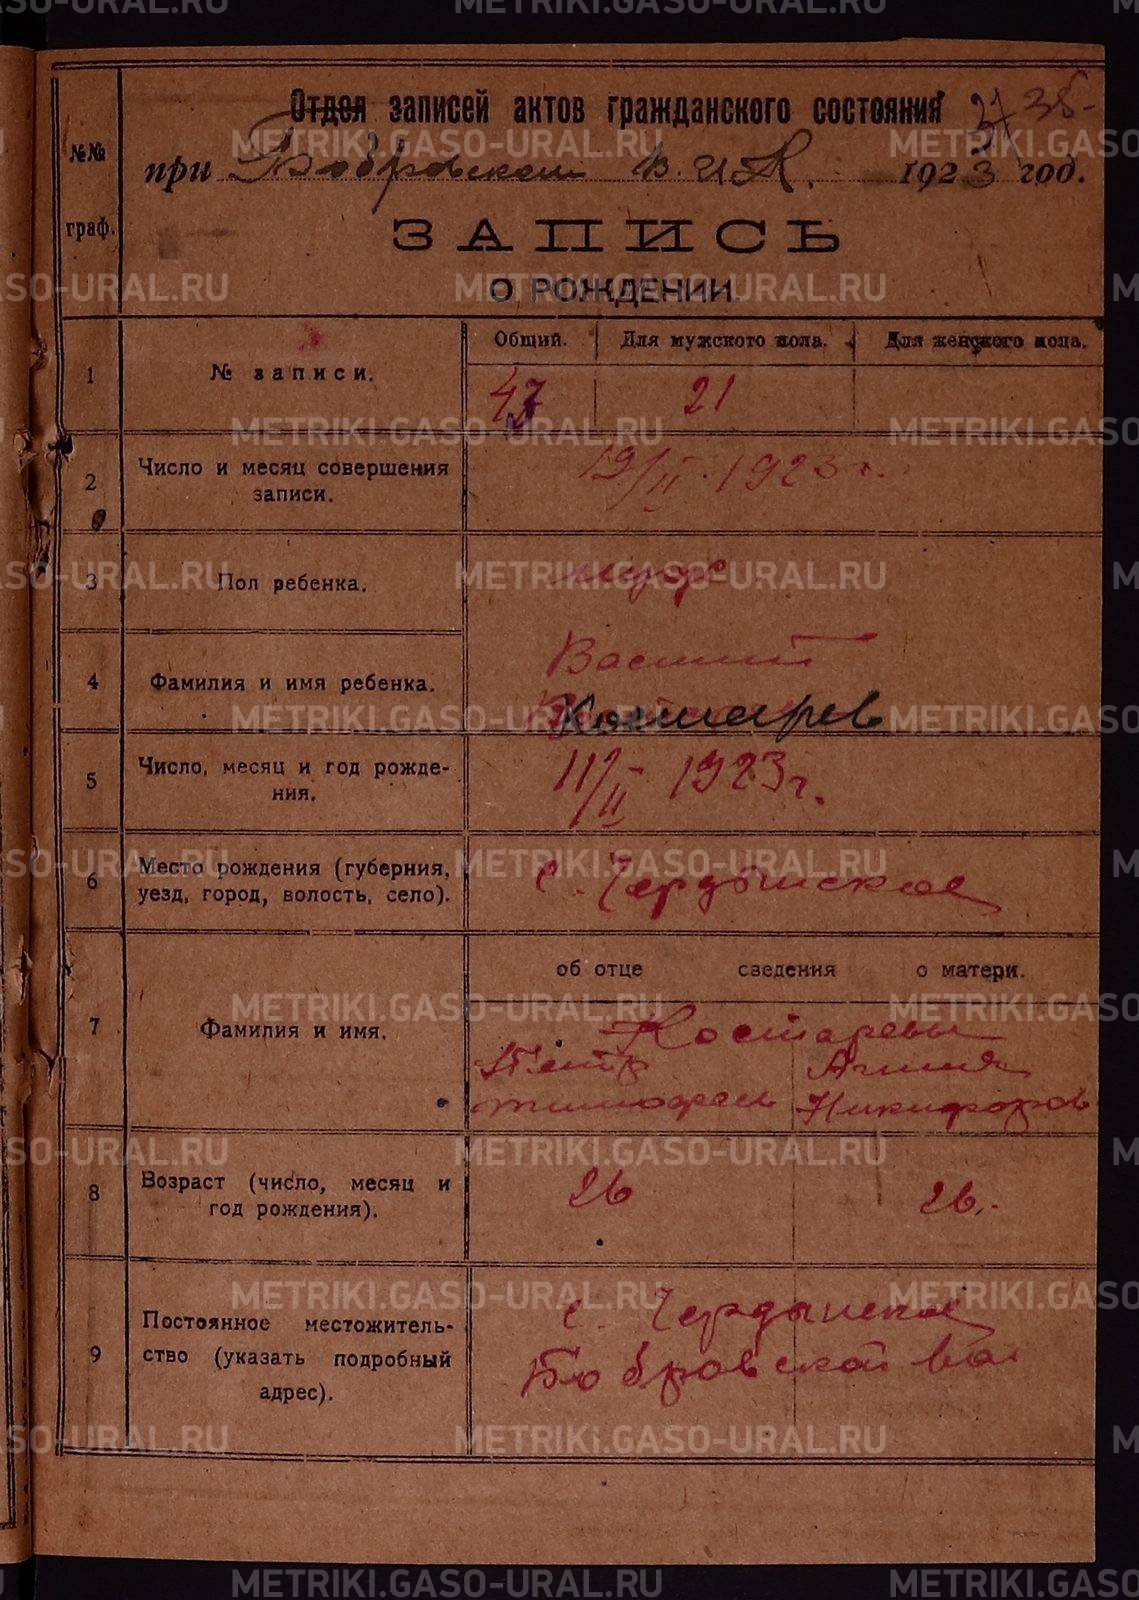 Отдел записей актов гражданского состояния 37 38
при Бобровском В.И.К. 1923 год.
№№ граф.
ЗАПИСЬ
О РОЖДЕНИИ
1 № записи. Общий. Для мужского пола. Для женского пола.
47 21
2 Число и месяц совершения записи. 19/II 1923 г.
3 Пол ребенка. муж
4 Фамилия и имя ребенка. Василий
Костарев
5 Число, месяц и год рожде-
ния. 11/II 1923 г.
6 Место рождения (губерния,
уезд, город, волость, село). с. Чердынское
об отце сведения о матери.
7 Фамилия и имя. Костаревы
Петр Агния
Тимофеев Никифоров
8 Возраст (число, месяц и
год рождения). 26 26.
9 Постоянное местожитель-
ство (указать подробный
адрес). с. Чердынское
Бобровской вол
METRIKI.GASO-URAL.RU